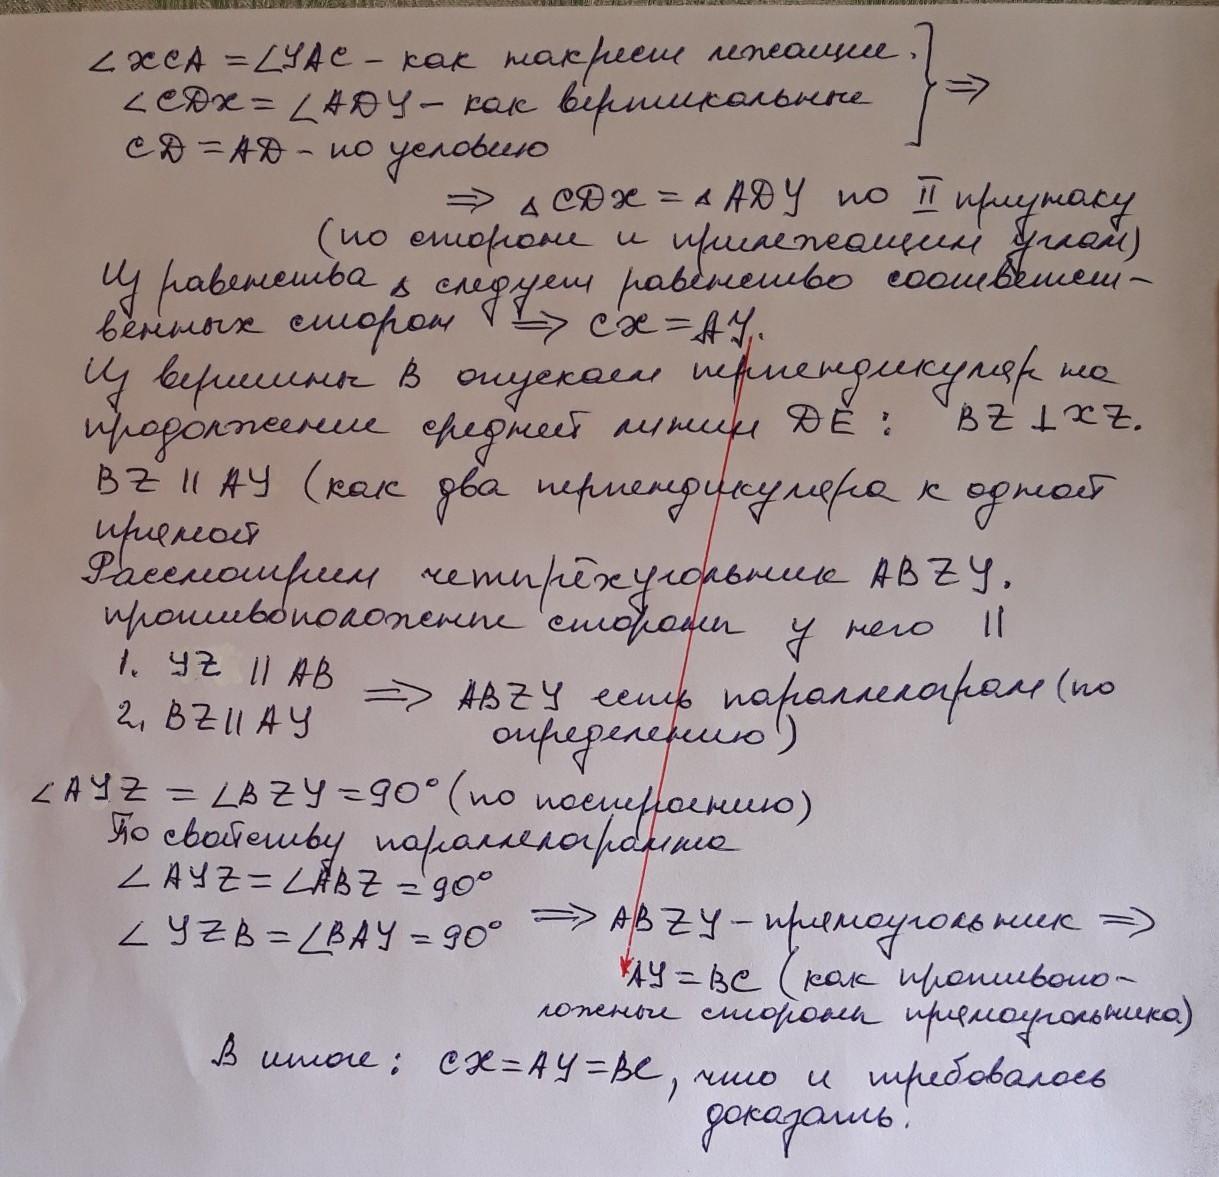 ∠XCA = ∠YAC – как накрест лежащие.
∠CDX = ∠ADY – как вертикальные } ⇒
CD = AD – по условию
⇒ △CDX = △ADY по II признаку
(по стороне и прилежащим углам)
Из равенства △ следует равенство соответст-
венных сторон ⇒ CX = AY.
Из вершины B опускаем перпендикуляр на
продолжение средней линии DE : BZ ⊥ XZ.
BZ || AY (как два перпендикуляра к одной
прямой
Рассмотрим четырёхугольник ABZY.
противоположные стороны у него ||
1. YZ || AB
2. BZ || AY ⇒ ABZY есть параллелограм (по
определению)
∠AYZ = ∠BZY = 90° (по построению)
По свойству параллелограмма
∠AYZ = ∠ABZ = 90°
∠YZB = ∠BAY = 90° ⇒ ABZY – прямоугольник ⇒
AY = BC (как противопо-
ложные стороны прямоугольника)
В итоге : CX = AY = BC, что и требовалось
доказать.